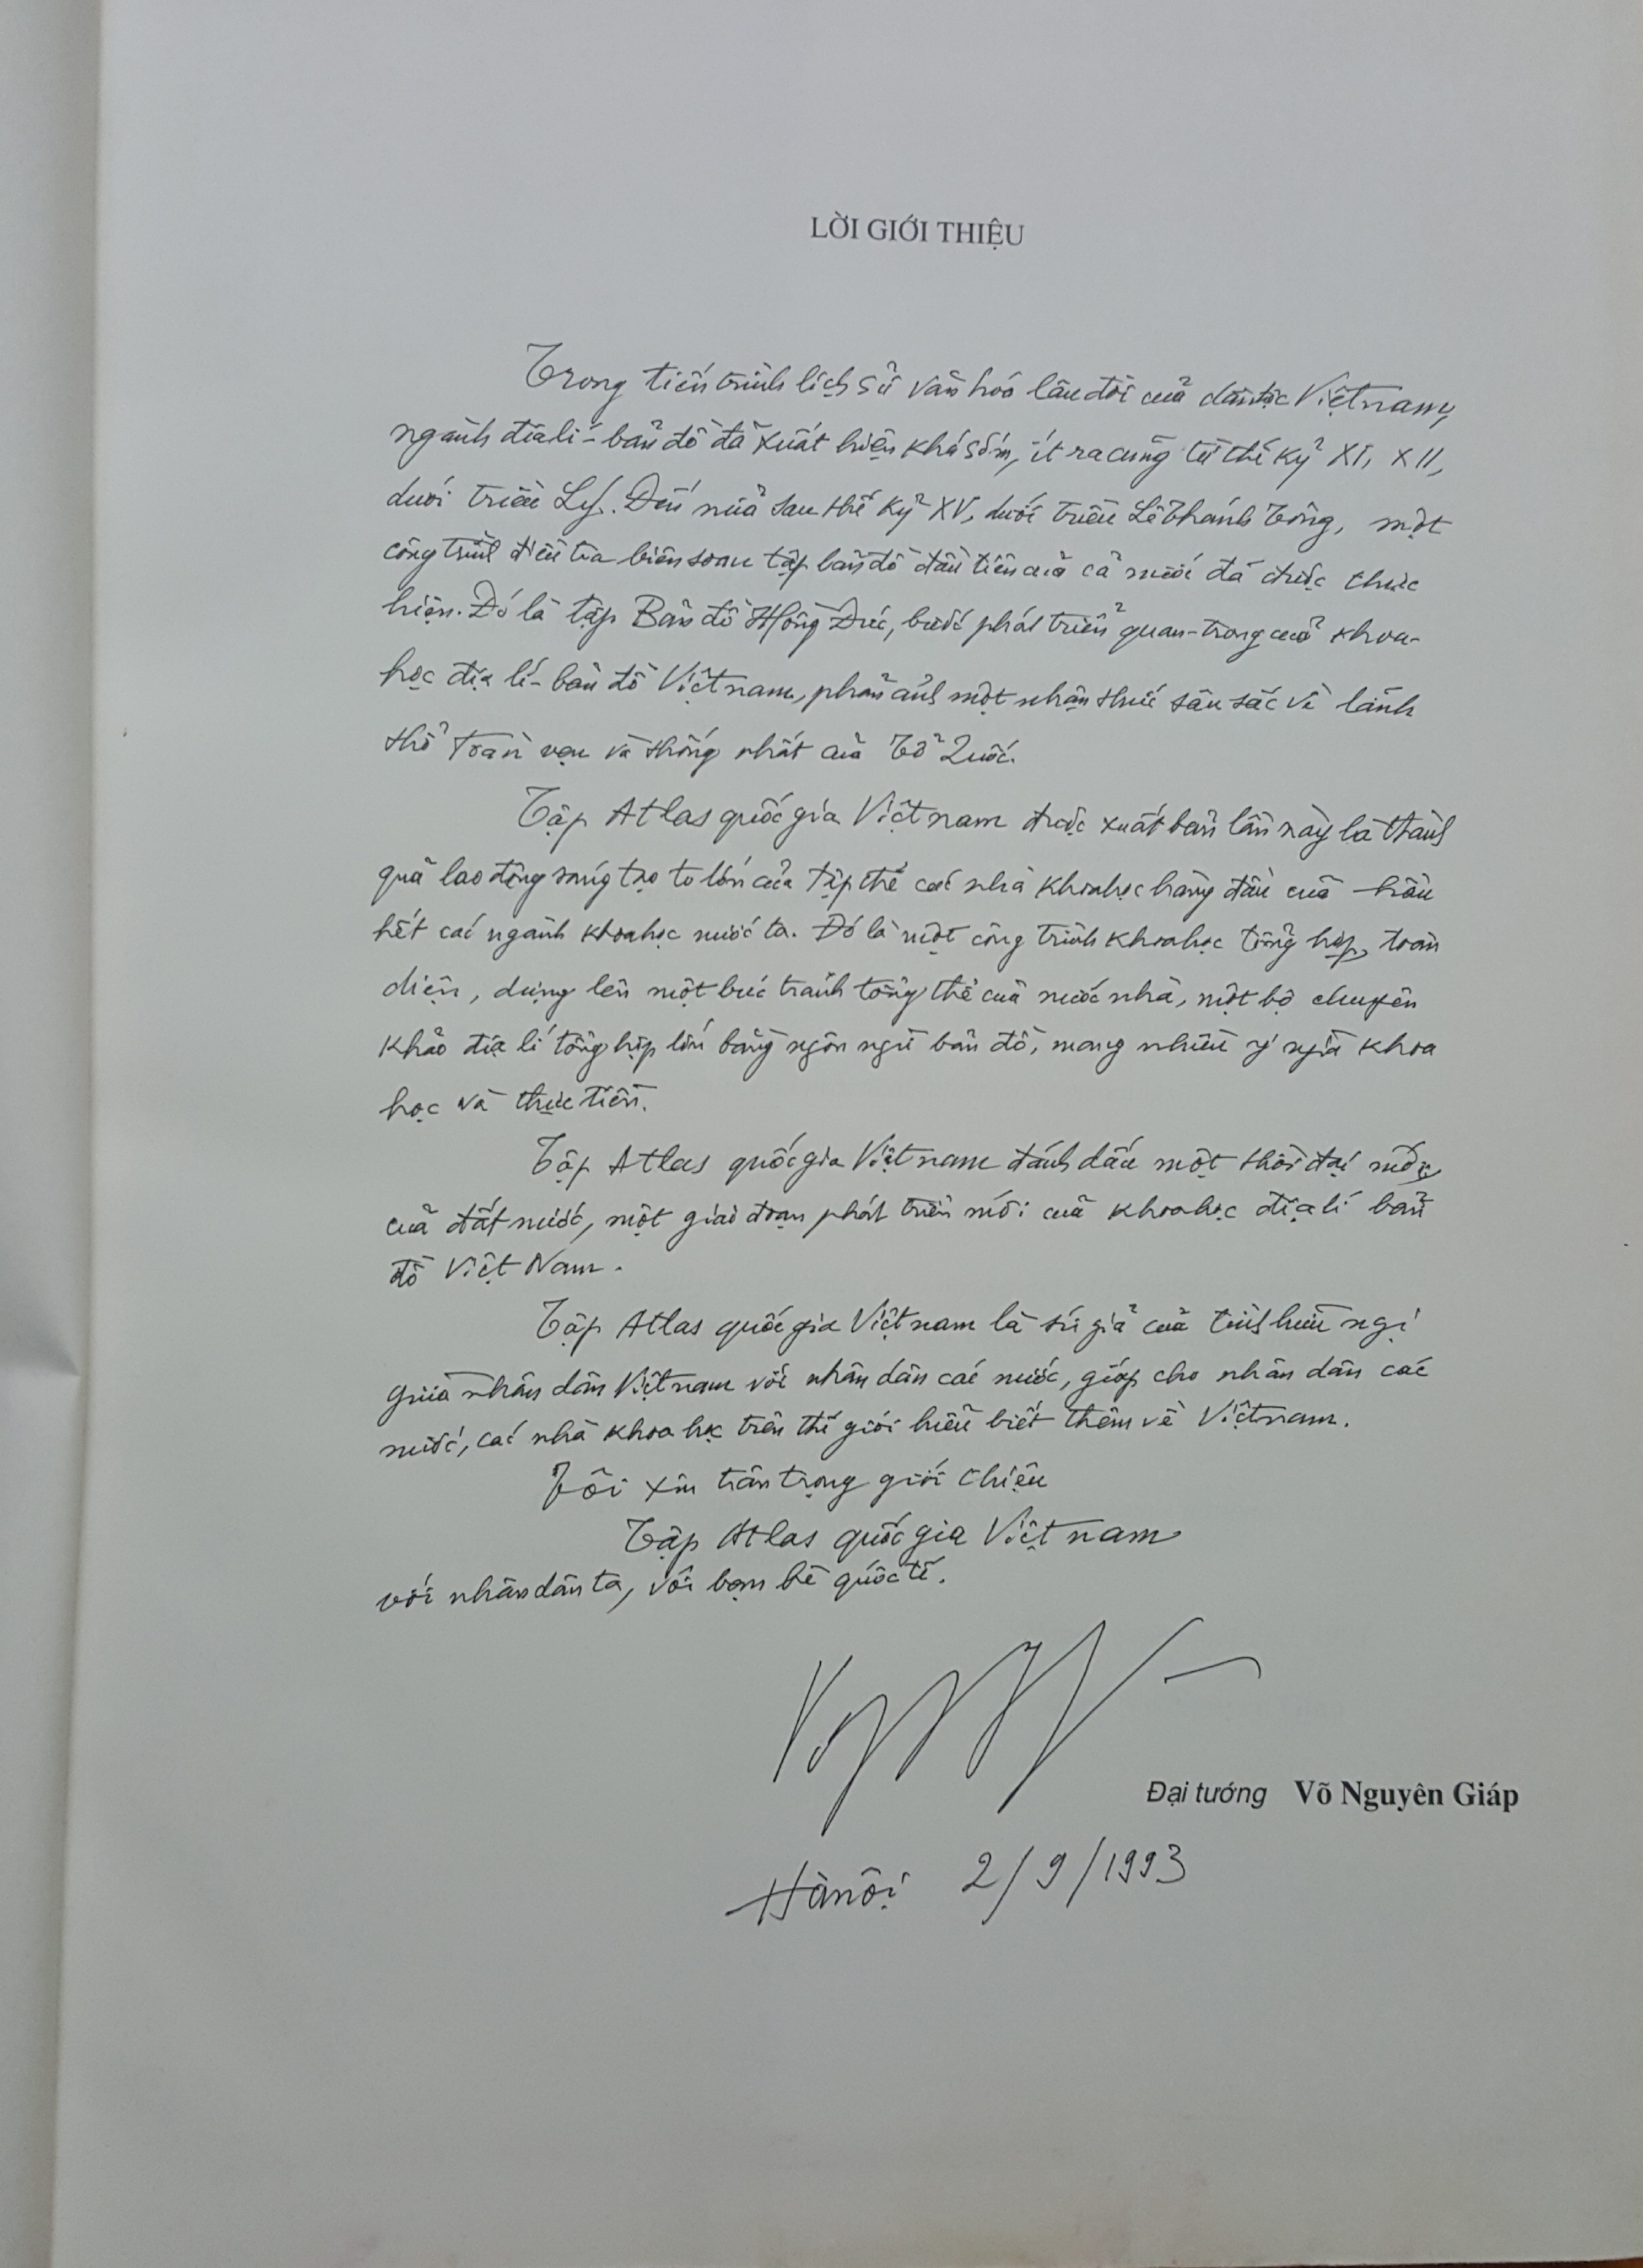 LỜI GIỚI THIỆU
Trong tiến trình lịch sử văn hóa lâu đời của dân tộc Việt nam,
ngành địa lí - bản đồ đã xuất hiện khá sớm, ít ra cũng từ thế kỷ XI, XII,
dưới triều Lý. Đến nửa sau thế kỷ XV, dưới triều Lê Thánh Tông, một
công trình điều tra biên soạn tập bản đồ đầu tiên của cả nước đã được thực
hiện. Đó là tập Bản đồ Hồng Đức, bước phát triển quan-trọng của khoa-
học địa lí - bản đồ Việt nam, phản ánh một nhận thức sâu sắc về lãnh
thổ toàn vẹn và thống nhất của Tổ Quốc.
Tập Atlas quốc gia Việt nam được xuất bản lần này là thành
quả lao động sáng tạo to lớn của tập thể các nhà khoa học hàng đầu của hầu
hết các ngành khoa học nước ta. Đó là một công trình khoa học tổng hợp, toàn
diện, dựng lên một bức tranh tổng thể của nước nhà, một bộ chuyên
khảo địa lí tổng hợp lớn bằng ngôn ngữ bản đồ, mang nhiều ý nghĩa khoa
học và thực tiễn.
Tập Atlas quốc gia Việt nam đánh dấu một thời đại mới
của đất nước, một giai đoạn phát triển mới của khoa học địa lí bản
đồ Việt Nam.
Tập Atlas quốc gia Việt nam là sứ giả của tình hữu nghị
giữa nhân dân Việt nam với nhân dân các nước, giúp cho nhân dân các
nước, các nhà khoa học trên thế giới hiểu biết thêm về Việt nam.
Tôi xin trân trọng giới thiệu
Tập Atlas quốc gia Việt nam
với nhân dân ta, với bạn bè quốc tế.
Đại tướng Võ Nguyên Giáp
Hà nội 2/9/1993